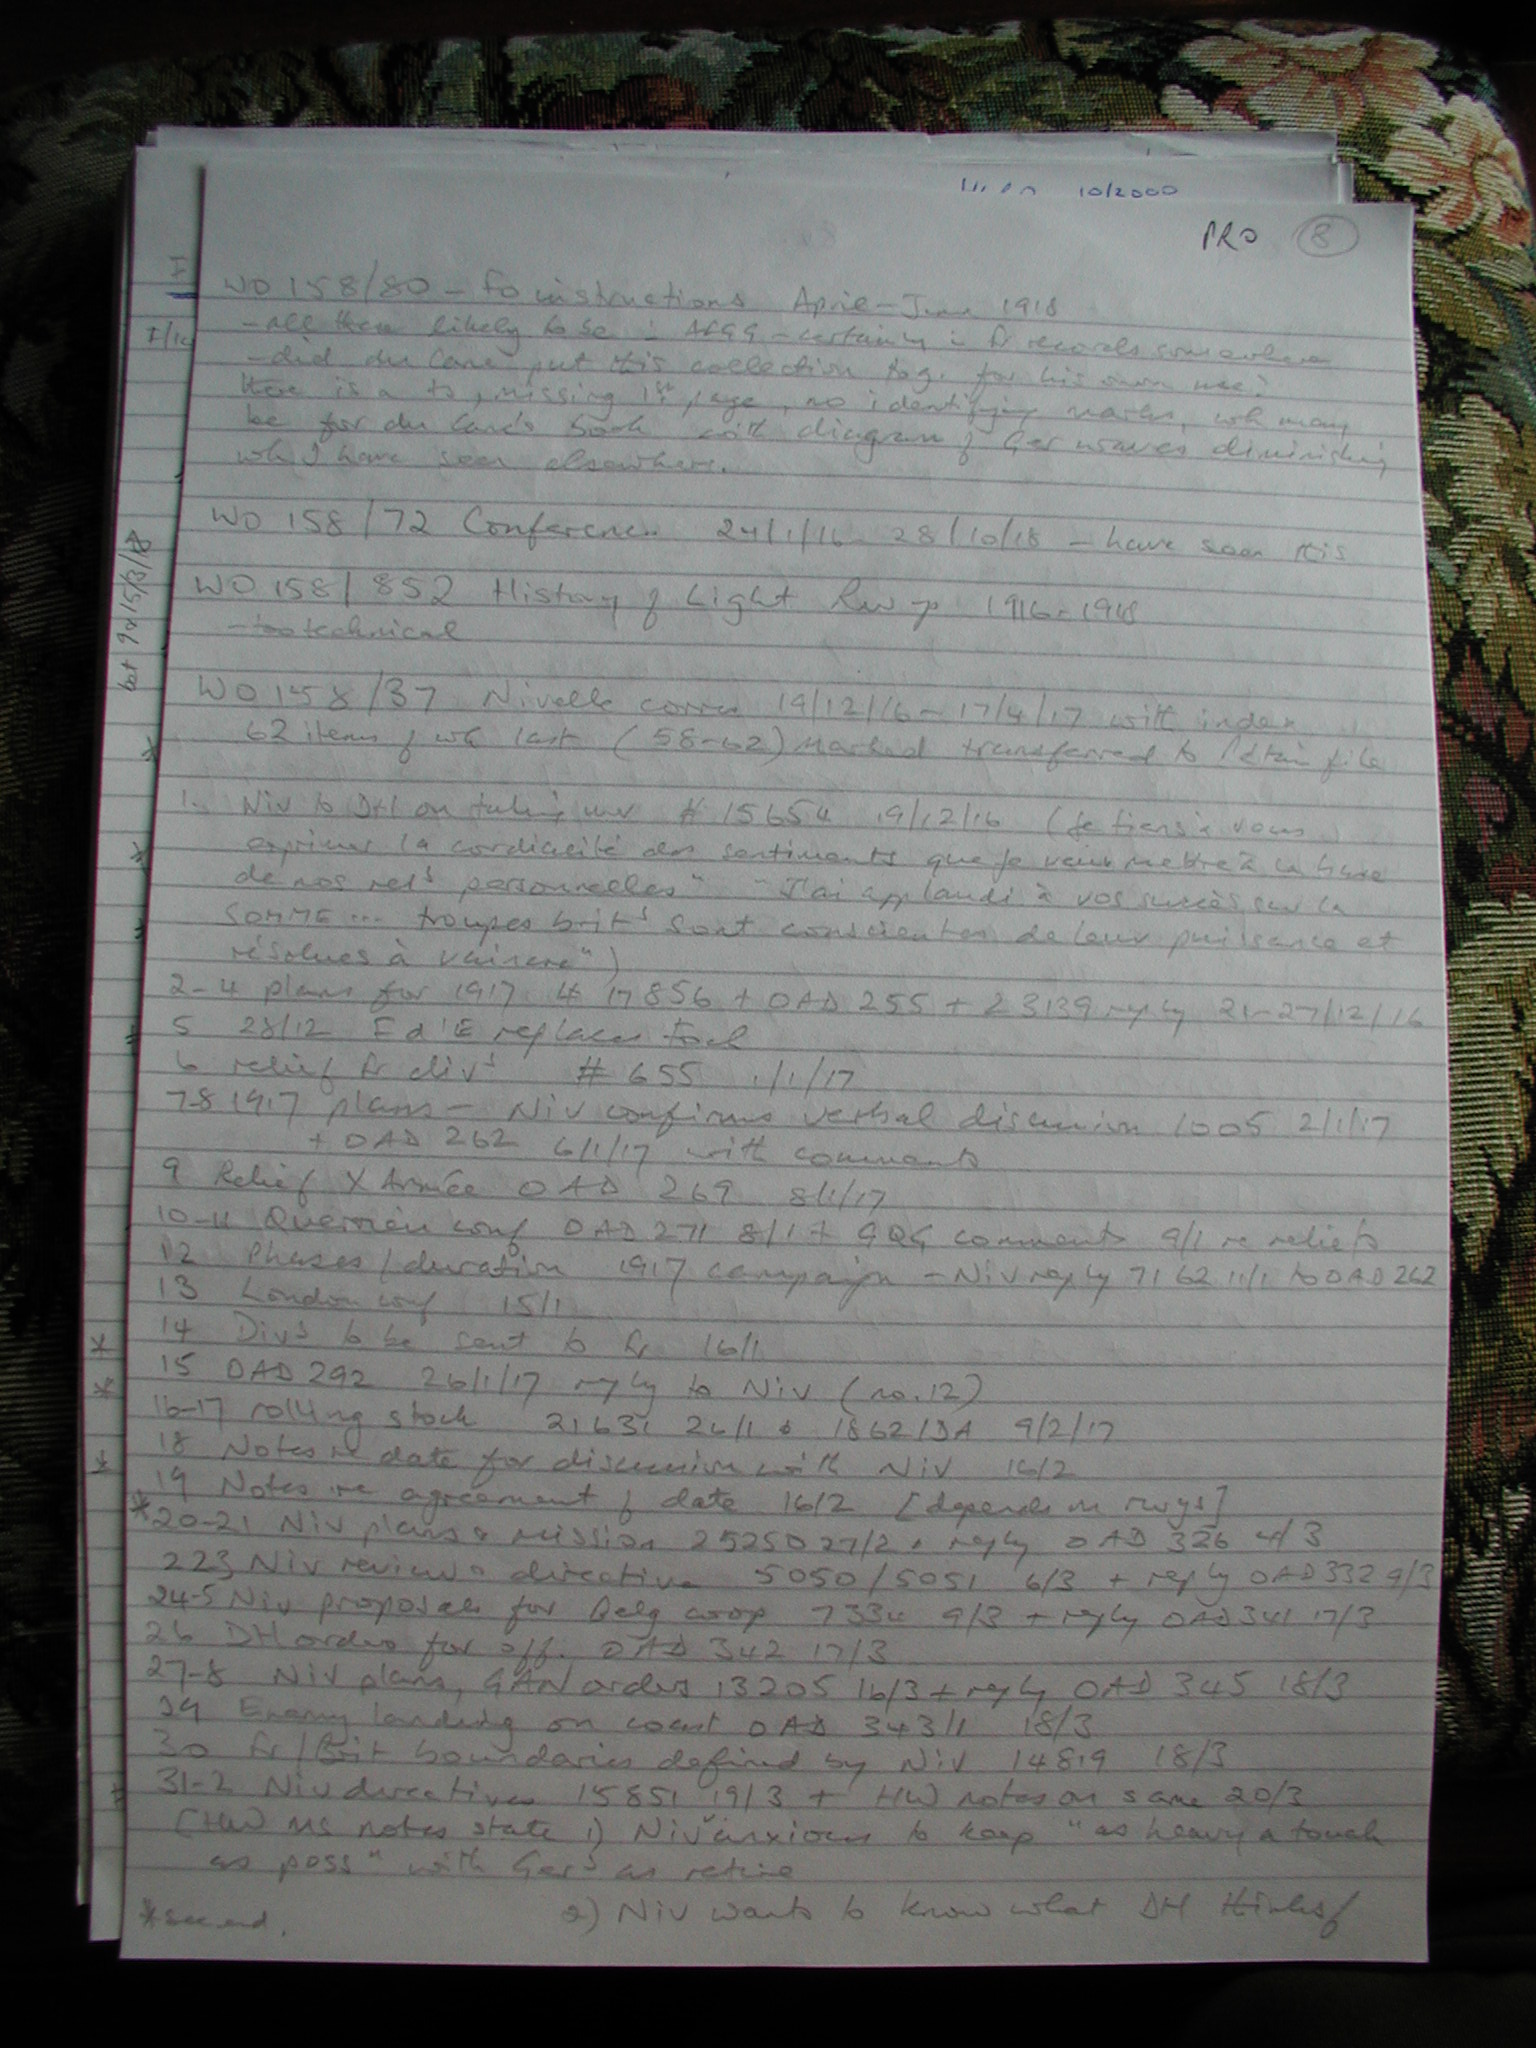 10/2000
PRO 8
WO 158/80 - Fo instructions April - June 1918
- all these likely to be in AFGG - certainly in Fr records somewhere
- did du Cane put this collection tog. for his own use?
there is a ts, missing 1st page, no identifying marks, wh may
be for du Cane's book with diagram of Ger waves diminishing
wh I have seen elsewhere.
WO 158/72 Conferences 24/1/16 - 28/10/18 - have seen this
WO 158/852 History of Light Rwys 1916-1918
- too technical
bet 9 & 15/3/18
WO 158/37 Nivelle corres 19/12/16 - 17/4/17 with index
62 items of wh last (58-62) marked transferred to Pétain file
1. Niv to DH on taking over # 15654 19/12/16 (Je tiens à vous
exprimer la cordialité des sentiments que je veux mettre à la base
de nos rels personnelles" "J'ai applaudi à vos succès sur la
SOMME ... troupes brits sont conscientes de leur puissance et
résolues à vaincre")
2-4 plans for 1917 # 17856 + OAD 255 + 23139 reply 21-27/12/16
5 28/12 F d'E replaces Foch
6 relief Fr divs # 655 1/1/17
7-8 1917 plans - Niv confirms verbal discussion 1005 2/1/17
+ OAD 262 6/1/17 with comments
9 Relief X Armée OAD 269 8/1/17
10-11 Querrieu conf OAD 271 8/1 + GQG comments 9/1 re reliefs
12 Phases/duration 1917 campaign - Niv reply 7162 11/1 to OAD 262
13 London conf 15/1
14 Divs to be sent to Fr 16/1
15 OAD 292 26/1/17 reply to Niv (no.12)
16-17 rolling stock 21631 26/1 & 1862/DA 9/2/17
18 Notes re date for discussion with Niv 16/2
19 Notes re agreement of date 16/2 [depends on rwys]
*20-21 Niv plans & mission 25250 27/2 + reply OAD 326 4/3
22-3 Niv review & directive 5050/5051 6/3 + reply OAD 332 9/3
24-5 Niv proposals for Belg coop 7334 9/3 + reply OAD 341 17/3
26 DH orders for off. OAD 342 17/3
27-8 Niv plans, GAN orders 13205 16/3 + reply OAD 345 18/3
29 Enemy landing on coast OAD 343/1 18/3
30 Fr/Brit boundaries defined by Niv 14819 18/3
31-2 Niv directives 15851 19/3 + HW notes on same 20/3
(HW ms notes state 1) Niv anxious to keep "as heavy a touch
as poss" with Gers as retire
2) Niv wants to know what DH thinks of
*see end.